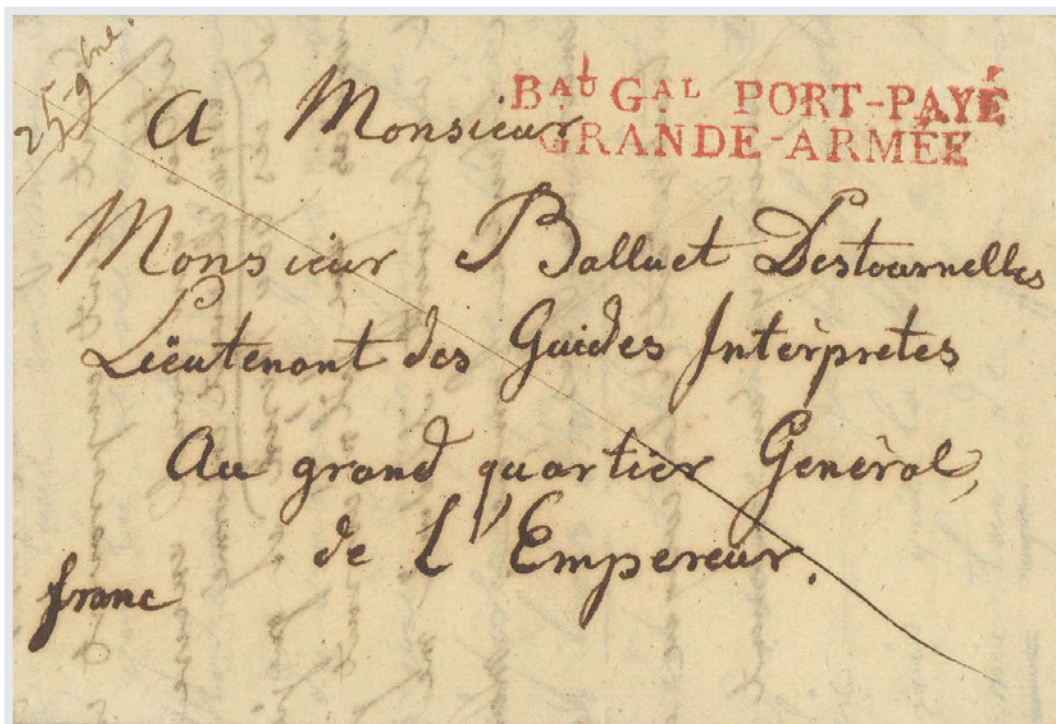 25 9bre.
Bau Gal PORT-PAYÉ
GRANDE-ARMÉE
A Monsieur
Monsieur Balluet Destournelles
Lieutenant des Guides Interprètes
Au grand quartier Général,
de L'Empereur.
franc